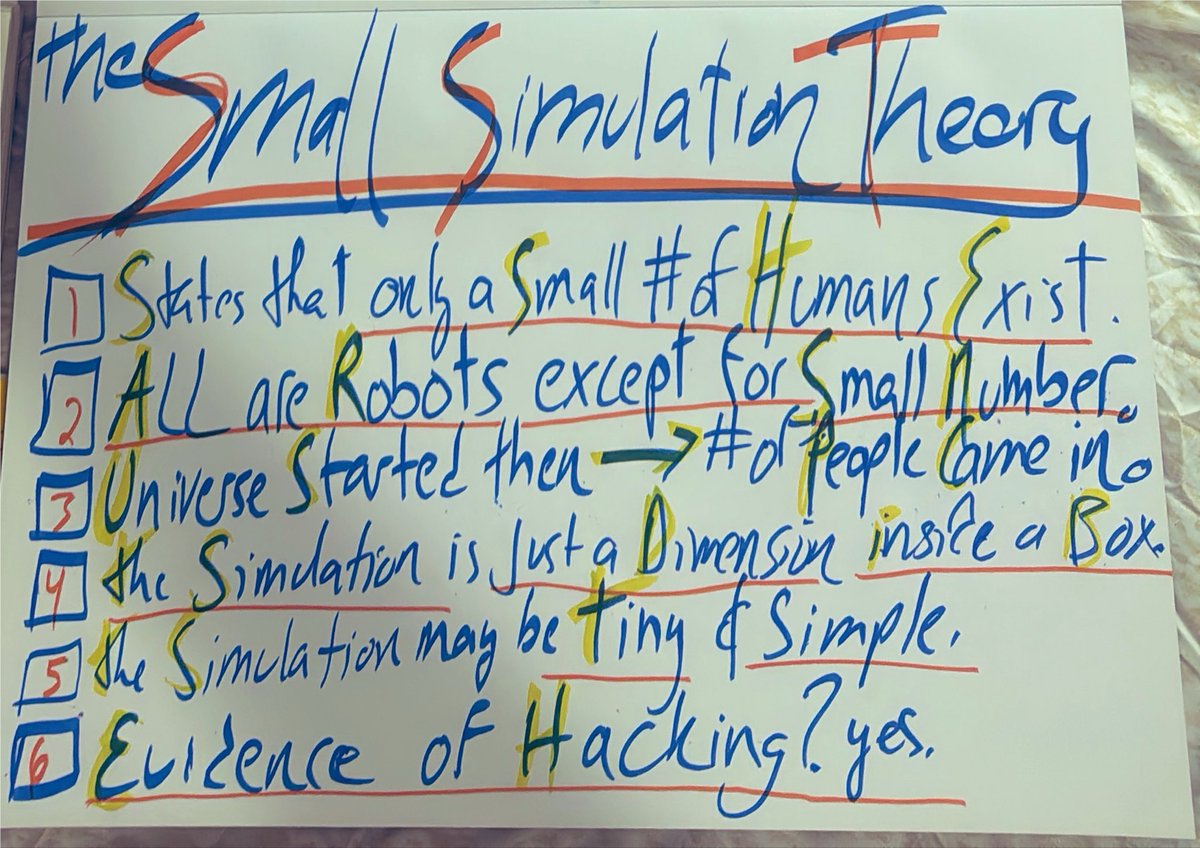 the Small Simulation Theory
1 States that only a Small # of Humans Exist.
2 All are Robots except for Small Number.
3 Universe Started then → # of People Came in.
4 the Simulation is just a Dimensin inside a Box.
5 the Simulation may be Tiny & Simple.
6 Evidence of Hacking? yes.